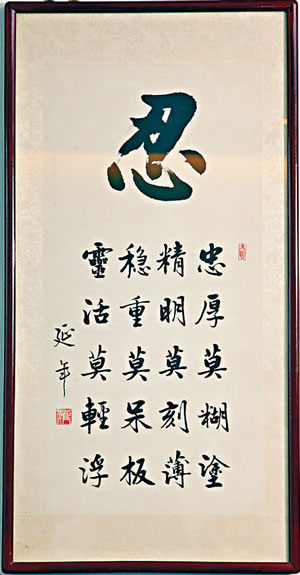 忍
忠厚莫糊塗
精明莫刻薄
稳重莫呆板
靈活莫輕浮
延年